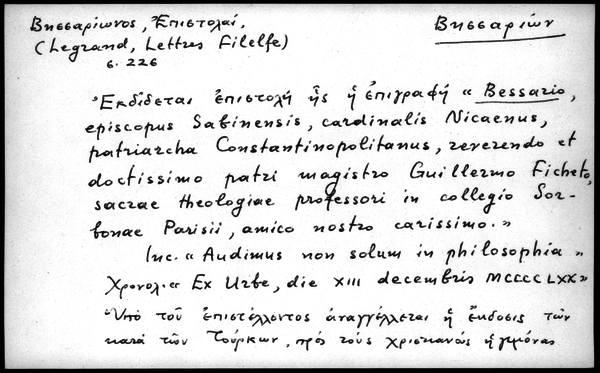 Βησσαρίωνος, Ἐπιστολαί, Βησσαρίων
(Legrand, Lettres Filelfe)
σ. 226
Ἐκδίδεται ἐπιστολὴ ἧς ἡ ἐπιγραφὴ « Bessario,
episcopus Sabinensis, cardinalis Nicaenus,
patriarcha Constantinopolitanus, reverendo et
doctissimo patri magistro Guillermo Ficheto,
sacrae theologiae professori in collegio Sor-
bonae Parisii, amico nostro carissimo.»
Inc. « Audimus non solum in philosophia »
Χρονολ. « Ex Urbe, die XIII decembris MCCCCLXX»
Ὑπὸ τοῦ ἐπιστέλλοντος ἀναγγέλλεται ἡ ἔκδοσις τῶν
κατὰ τῶν Τούρκων, πρὸς τοὺς χριστιανοὺς ἡγεμόνας